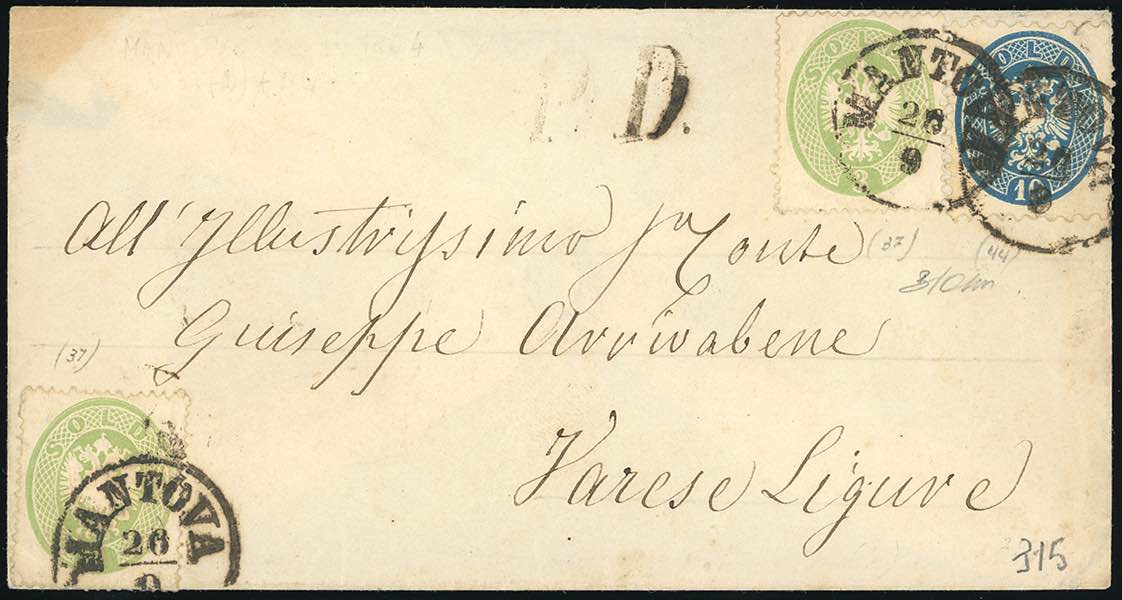 P. D.
SOLDI
3
MANTOVA
26
9
SOLDI
10
MANTOVA
26
9
All'Illustrissimo Sr Conte
(37)
(44)
Guiseppe Arrivabene
(37)
Varese Ligure
SOLDI
MANTOVA
26
9
315